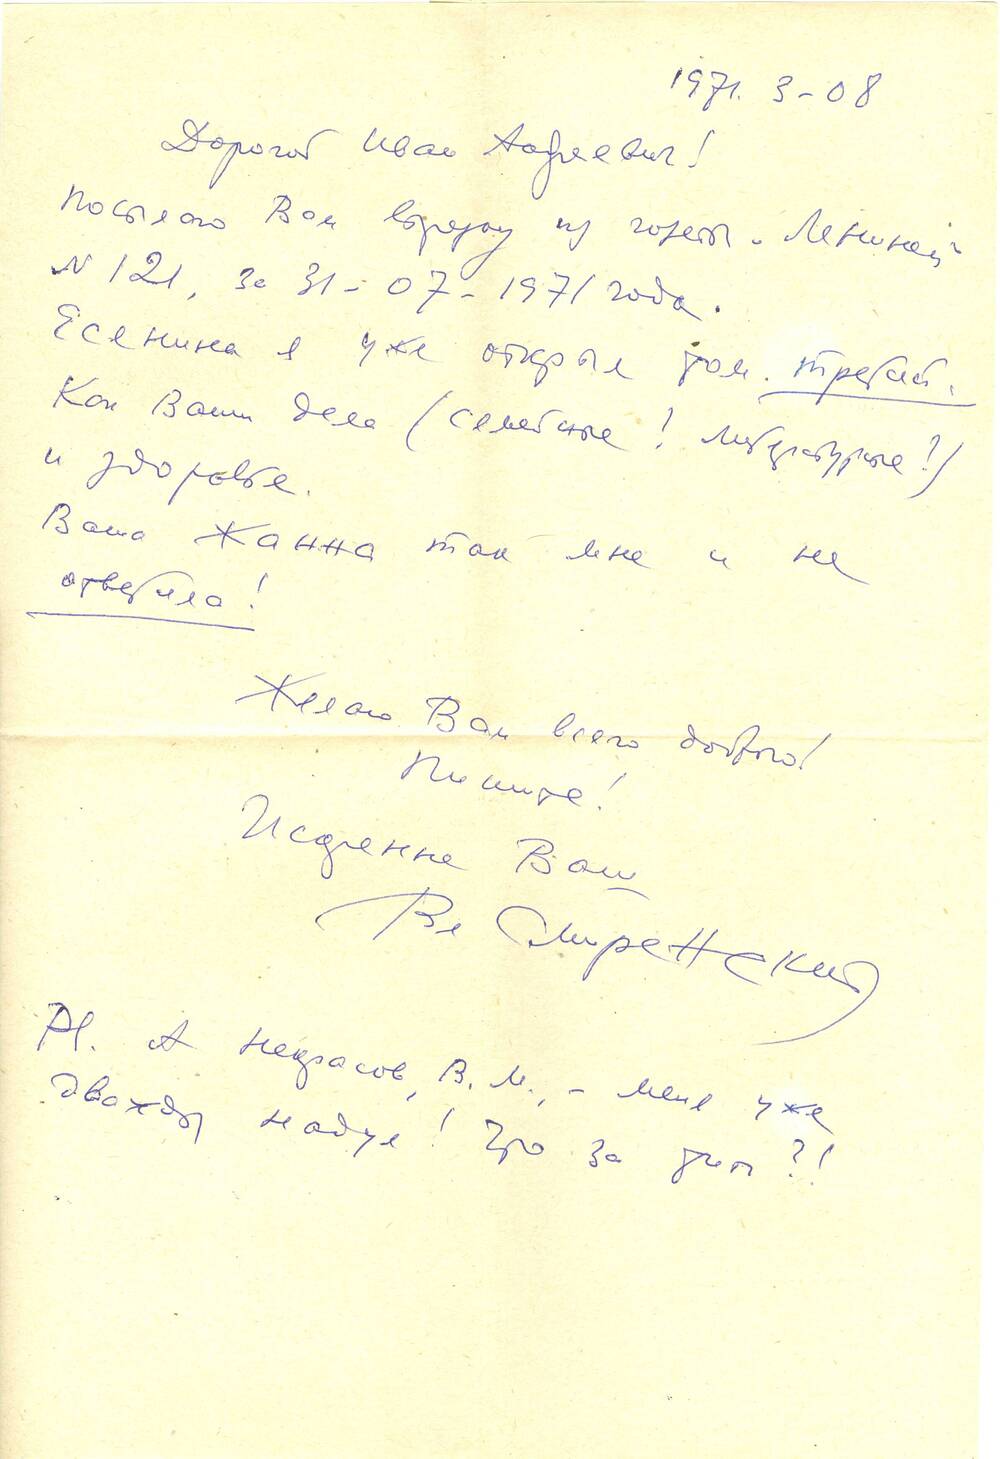 1971. 3-08
Дорогой Иван Андреевич!
Посылаю Вам вырезку из газеты „Ленинец"
№ 121, за 31-07-1971 года.
Есенина я уже открыл том. третий.
Как Ваши дела (семейные! литературные!?)
и здоровье.
Ваша Жанна так мне и не
ответила!
Желаю Вам всего доброго!
Пишите!
Искренне Ваш
Вл Смиренский
PS. А Некрасов, В. М., - меня уже
дважды надул! Что за тип?!